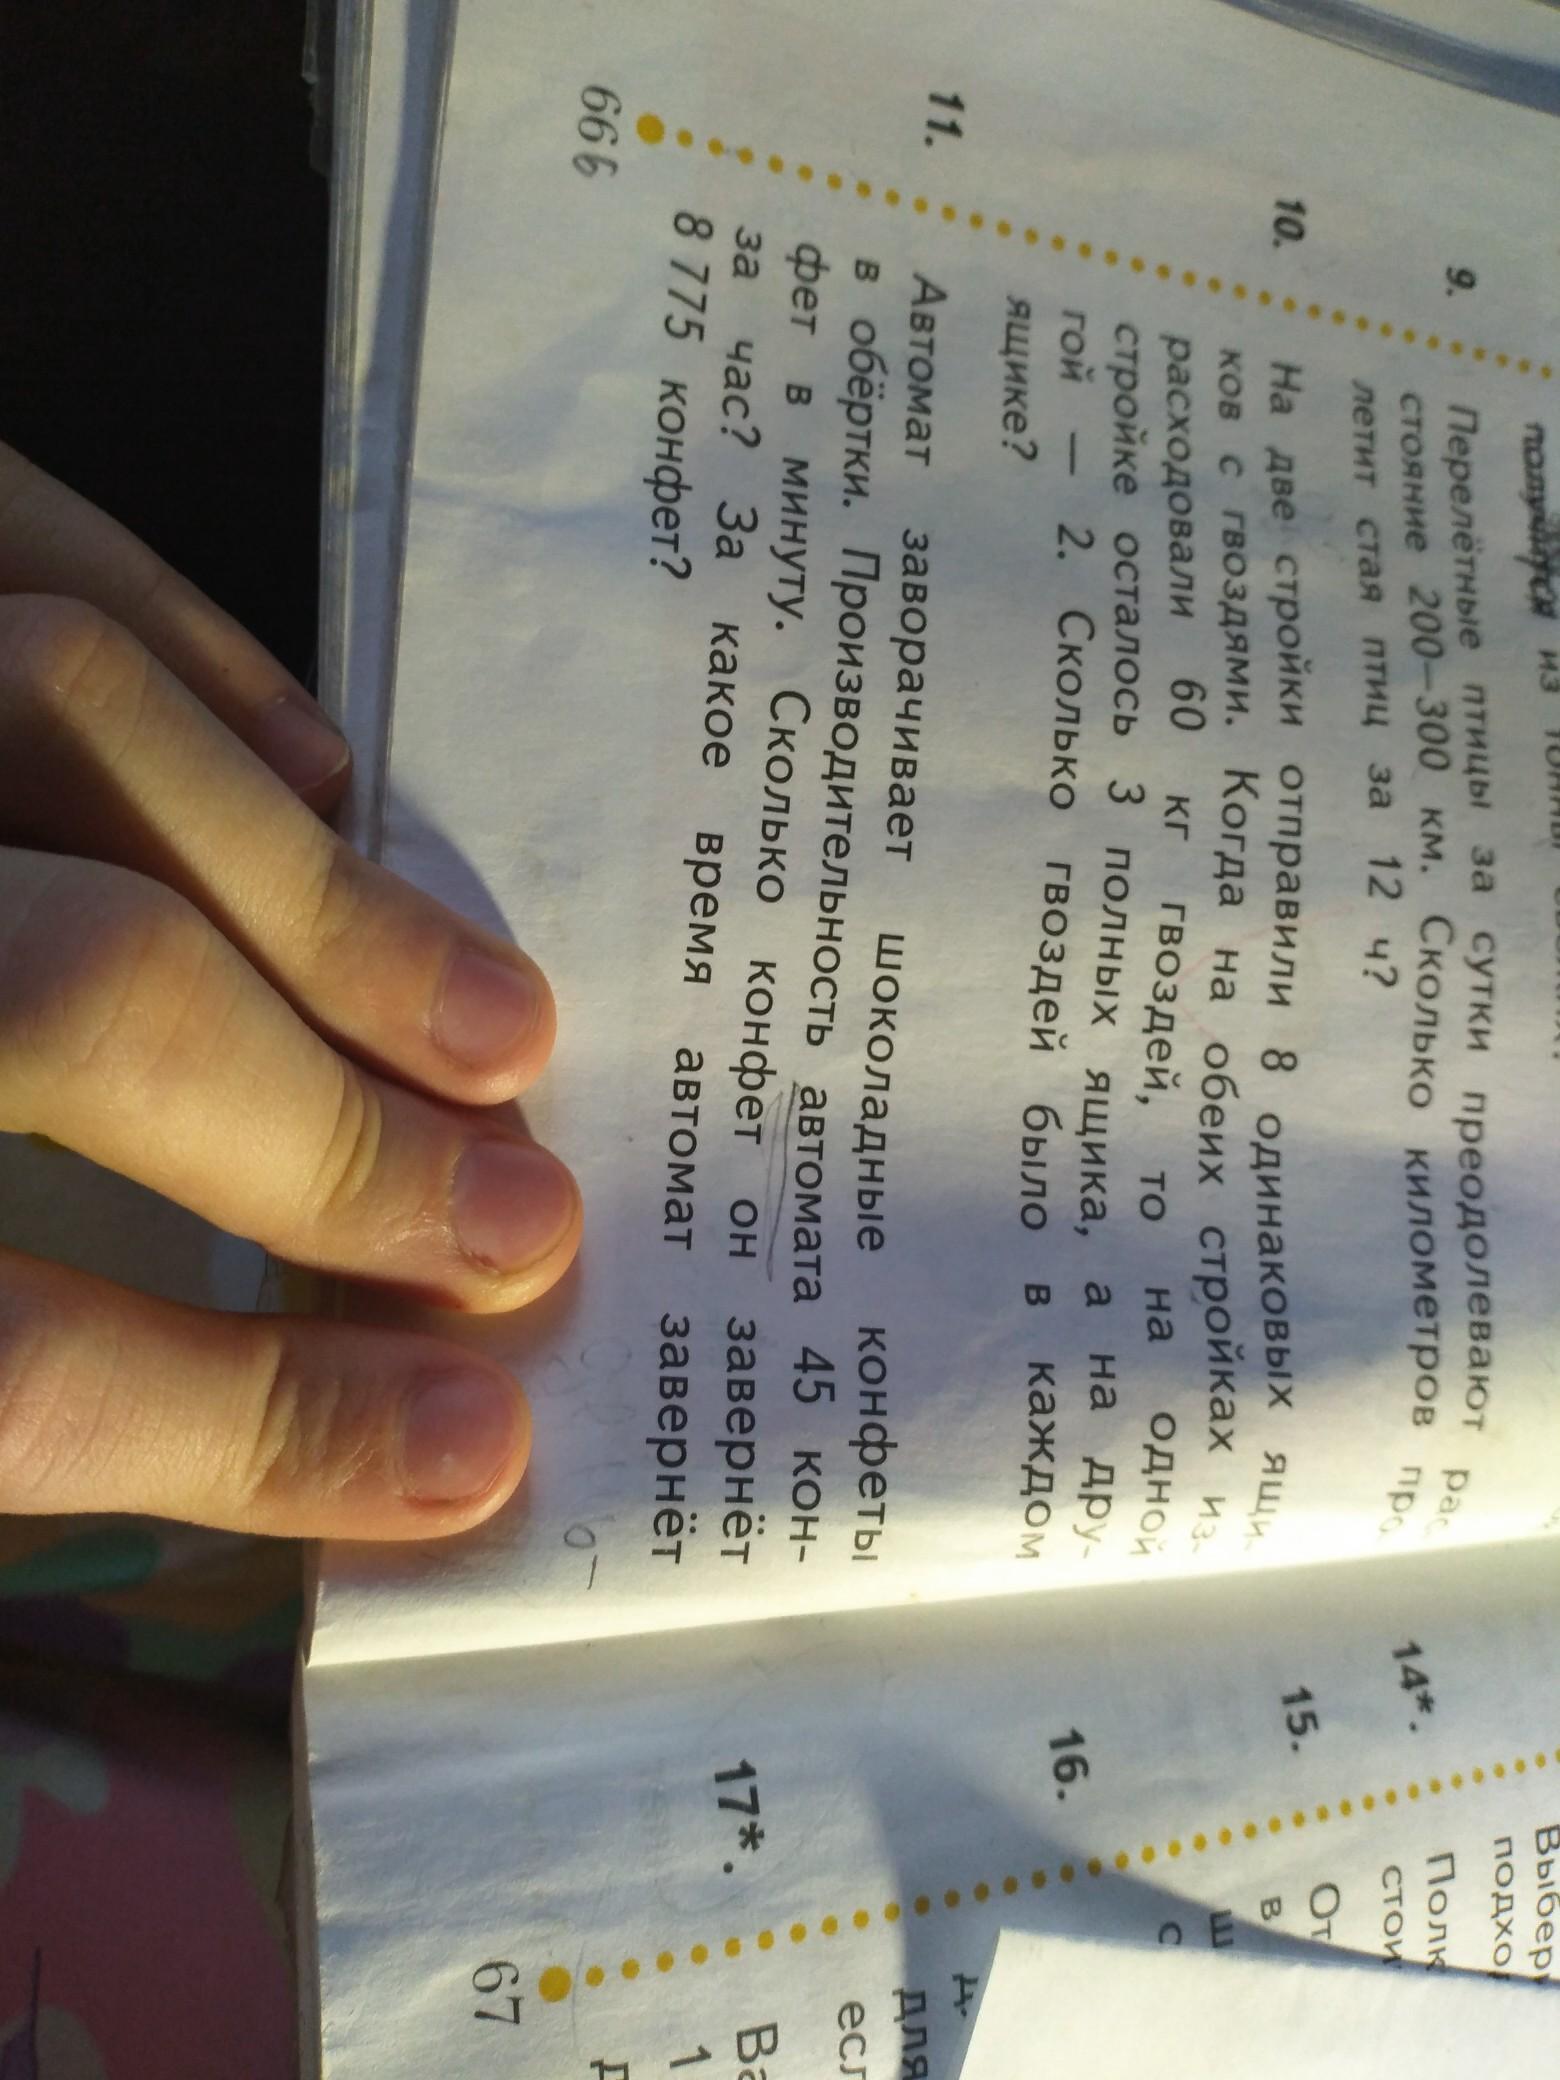 из
9. Перелётные птицы за сутки преодолевают рас
стояние 200—300 км. Сколько километров про
летит стая птиц за 12 ч?
10. На две стройки отправили 8 одинаковых ящи-
ков с гвоздями. Когда на обеих стройках из-
расходовали 60 кг гвоздей, то на одной
стройке осталось 3 полных ящика, а на дру-
гой — 2. Сколько гвоздей было в каждом
ящике?
11. Автомат заворачивает шоколадные конфеты
в обёртки. Производительность автомата 45 кон-
фет в минуту. Сколько конфет он завернёт
за час? За какое время автомат завернёт
8 775 конфет?
66 в
14*.
15.
16.
17*.
Полк
стои
От
в
ш
с
д.
для
есл
Ва
1
67